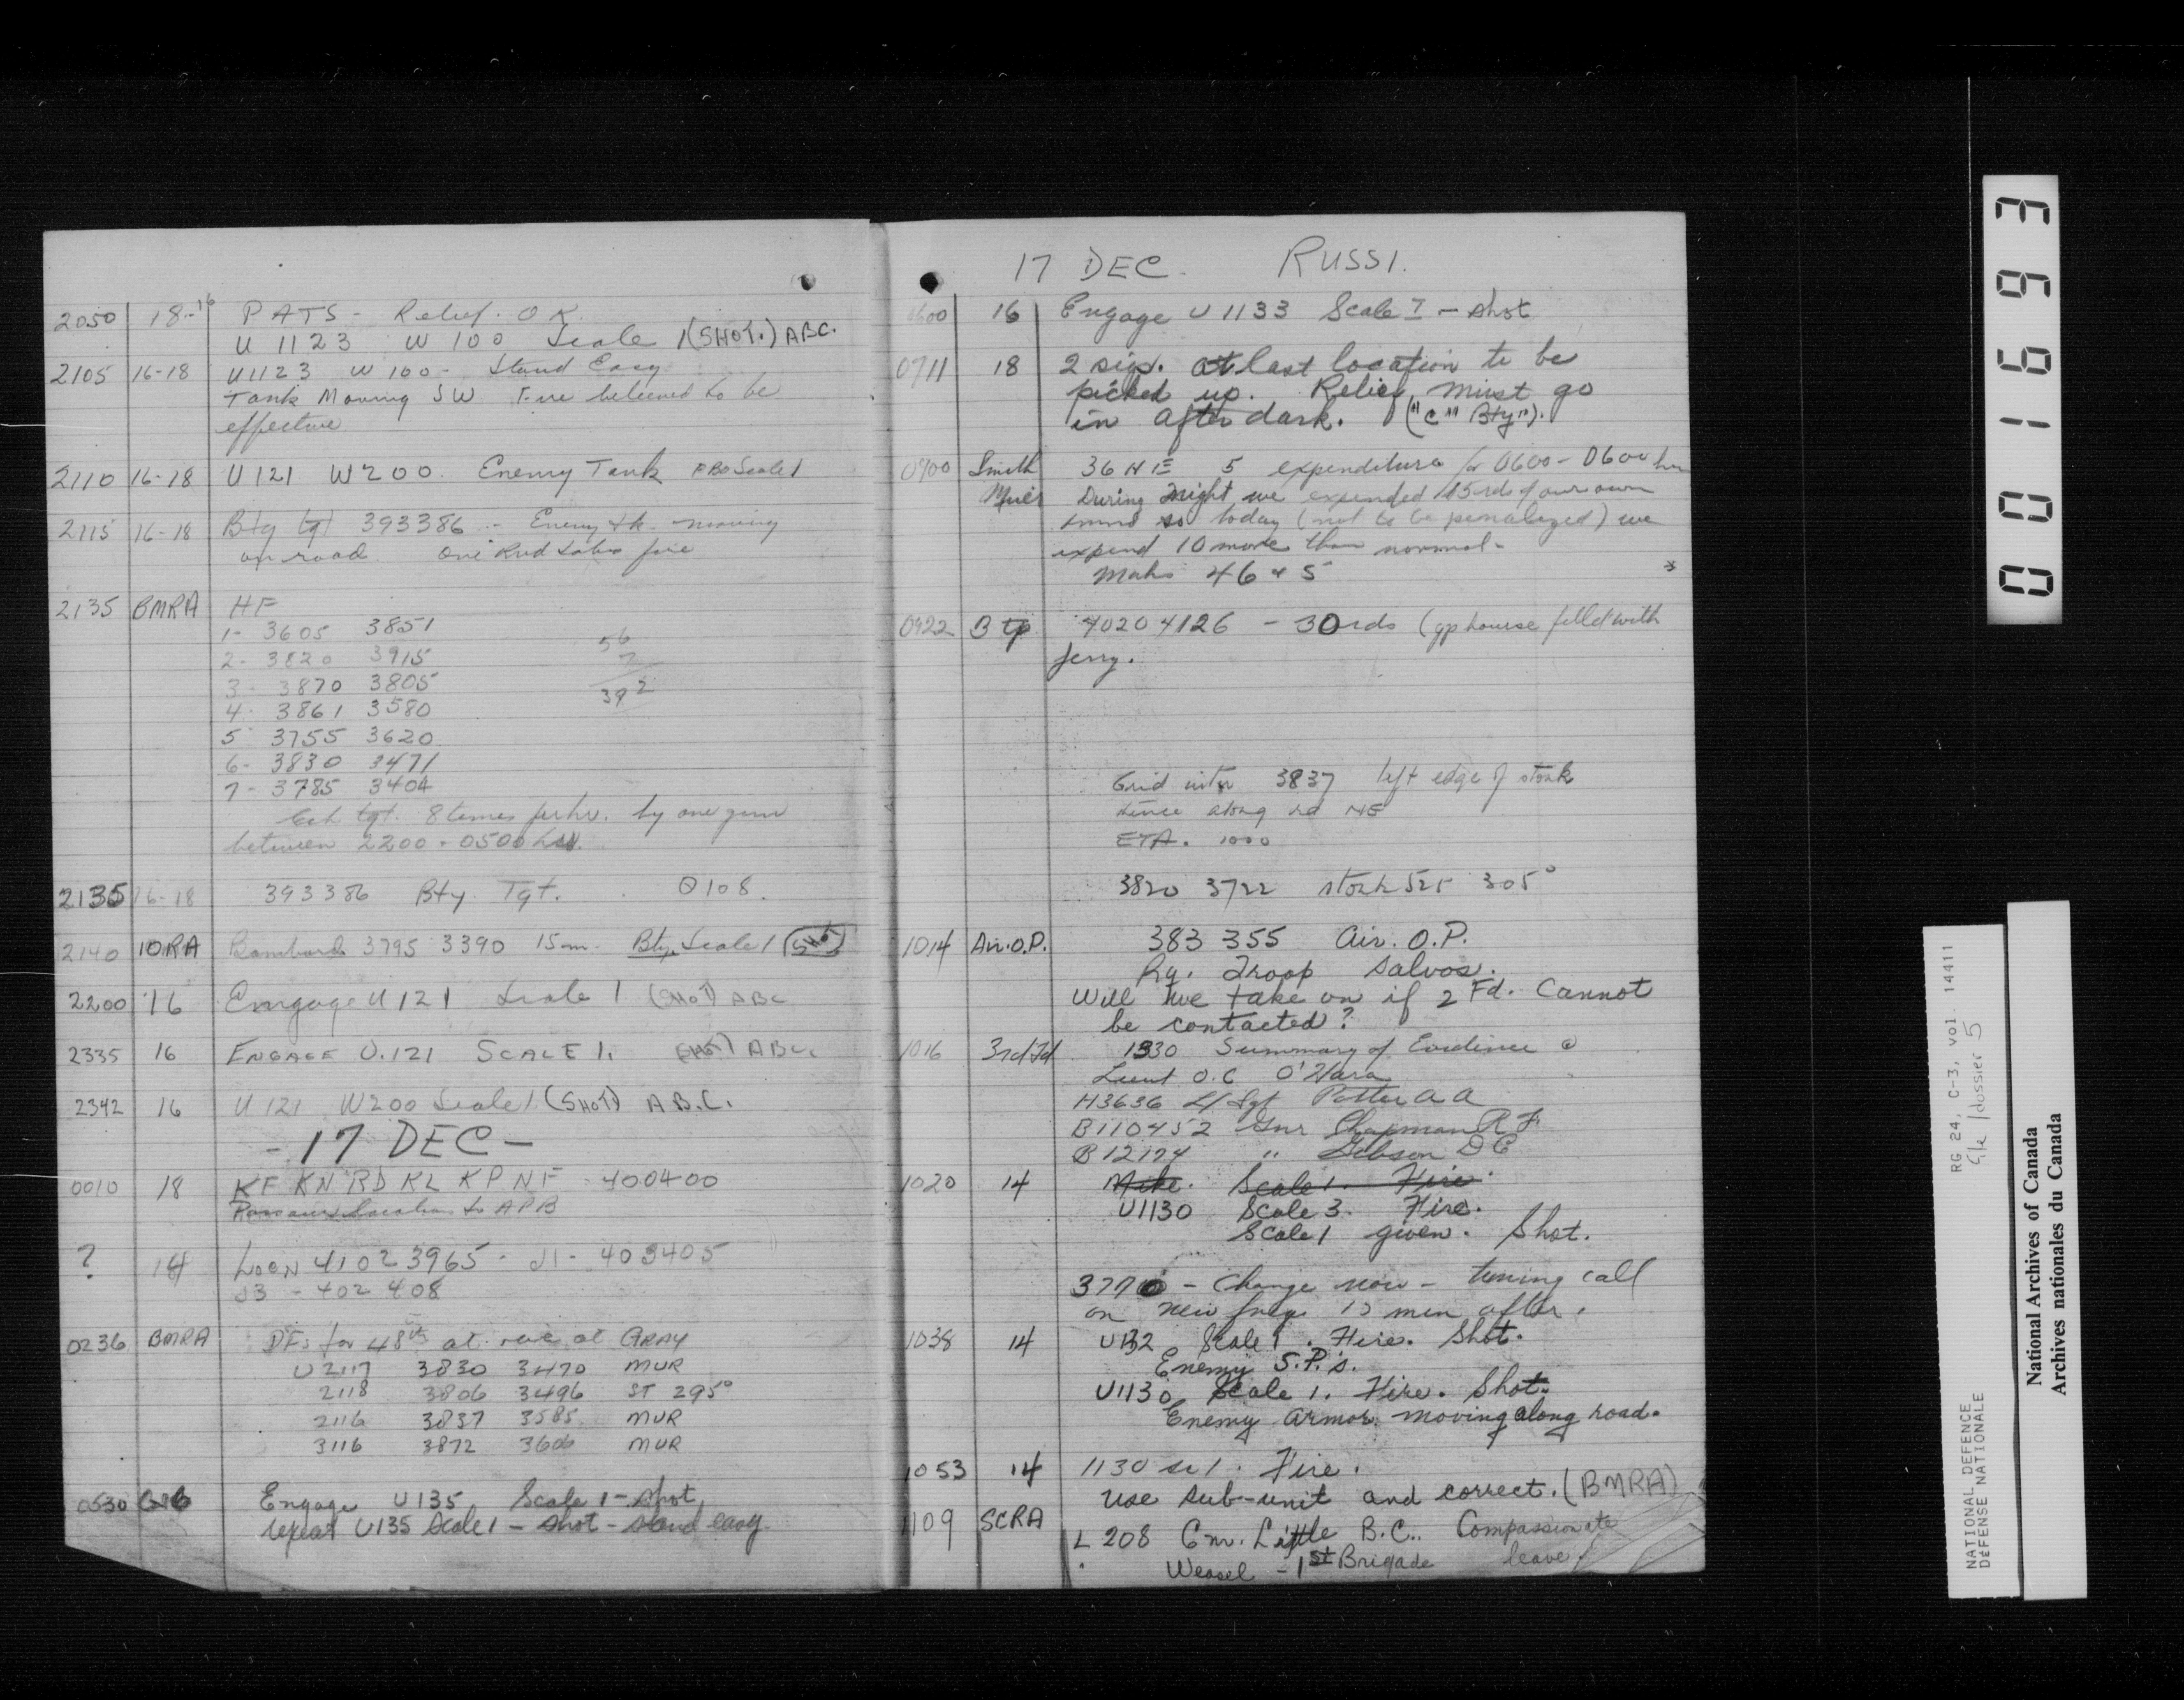 2050 18-16 PATS - Relief. OK.
U 1123 W 100 Scale 1 (SHOT.) ABC.
2105 16-18 U1123 W 100 - Stand Easy
Tank Moving SW Fire believed to be
effective
2110 16-18 U 121 W200. Enemy Tank Scale 1
2115 16-18 Bty tgt 393386 - Enemy tk moving
on road One Rnd fire
2135 BMRA HF
1- 3605 3851
2- 3820 3915
3- 3870 3805
4- 3861 3580
5 3755 3620
6- 3830 3471
7- 3785 3404
56
7
392
tgt. 8 times per hr. by one gun
between 2200 - 0500 hrs.
2135 16-18 393386 Bty Tgt. 0108.
2140 10RA Bombard 3795 3390 15m. Bty Scale 1 (SHOT)
2200 16 Engage U 121 Scale 1 (SHOT) ABC
2335 16 ENGAGE U.121 SCALE 1. (SHOT) ABC.
2342 16 U 121 W200 Scale 1 (SHOT) A.B.C.
- 17 DEC -
0010 18 KF KN RD KL KP NF 400400
to APB
? 14 LOCN 4102 3965 - J1 - 403405
J3 - 402 408
0236 BMRA DFs for 48th at
U2117 3830 3470 MUR
2118 3806 3496 ST 295°
2116 3837 3585 MUR
3116 3872 3606 MUR
0530 Engage U135 Scale 1 - Shot
repeat U135 Scale 1 - Shot - stand easy
17 DEC. RUSSI.
0600 16 Engage U 1133 Scale I - shot
0711 18 2 sigs. at last location to be
picked up. Relief must go
in after dark. ("C" Bty").
0700 Smith 36 HE 5 expenditure for 0600 - 0600 hrs
During night we expended 15 rds of our own
so today (not to be penalized) we
expend 10 more than normal -
46 & 5
0922 B tp 4020 4126 - 30 rds (gp house filled with
jerry.
Grid 3837 left edge of stonk
hence along rd NE
ETA. 1000
3820 3722 stonk 525 305°
1014 Air.O.P. 383 355 Air. O.P.
Rg. Troop Salvos.
Will we take on if 2 Fd. Cannot
be contacted?
1016 3rd Fd 1330 Summary of Evidence @
Lieut O.C O'Hara
H3636 L/Sgt Potter A A
B110452 Gnr Chapman R F.
B 12174 " Gibson D C
1020 14 Mike. Scale 1. Fire.
U1130 Scale 3. Fire.
Scale 1 given. Shot.
3770 - Change now - tuning call
on new freq. 15 min after.
1038 14 U132 Scale 1. Fire. Shot.
Enemy S.P.'s.
U1130 Scale 1. Fire. Shot.
Enemy armor moving along road.
1053 14 1130 sc 1. Fire.
use sub-unit and correct. (BMRA)
1109 SCRA L 208 Gnr. Little B.C.. Compassionate
leave
Weasel - 1st Brigade
001693
RG 24, C-3, vol. 14411
file/dossier 5
NATIONAL DEFENCE
DÉFENSE NATIONALE
National Archives of Canada
Archives nationales du Canada